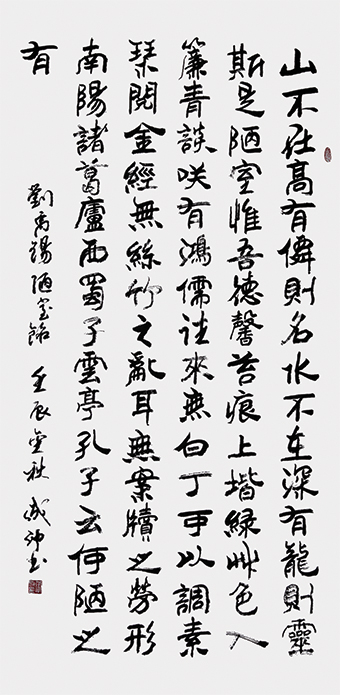 山不在高有僊則名水不在深有龍則靈
斯是陋室惟吾德馨苔痕上堦綠艸色入
簾青談咲有鴻儒往來無白丁可以調素
琹閱金經無絲竹之亂耳無案牘之勞形
南陽諸葛廬西蜀子雲亭孔子云何陋之
有
劉禹錫陋室銘 壬辰金秋 成坤书